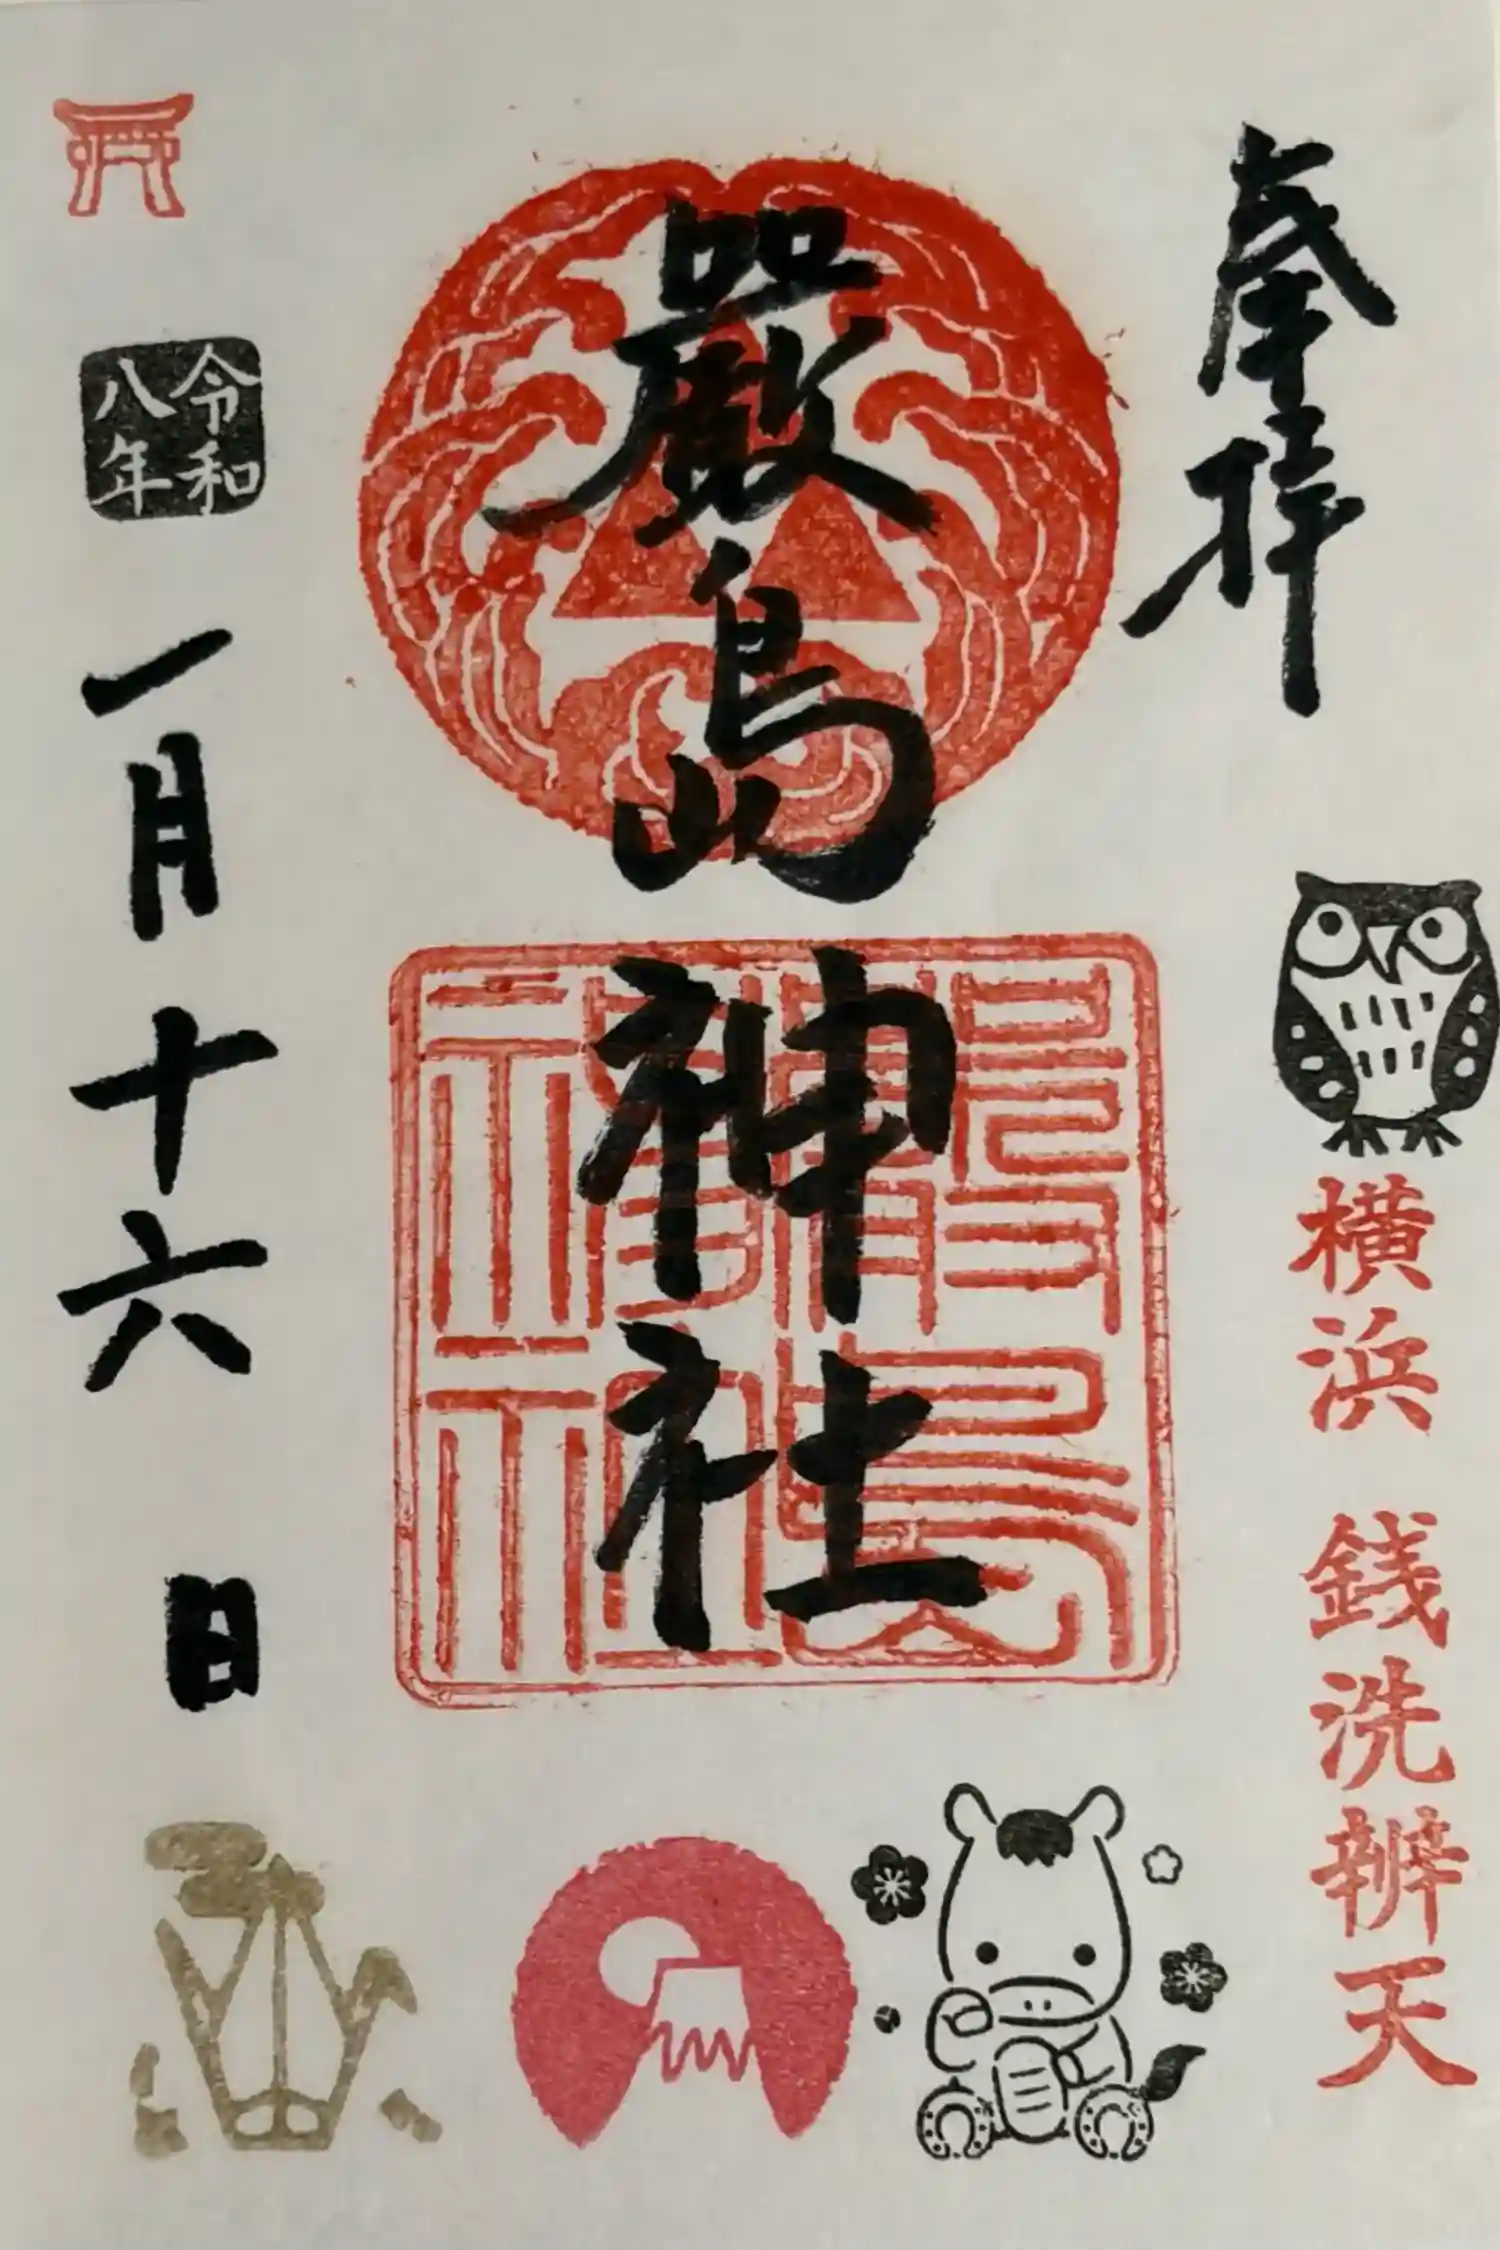 奉拝
横浜 銭洗辨天
嚴島神社
嚴島神社
令和
八年
一月十六日